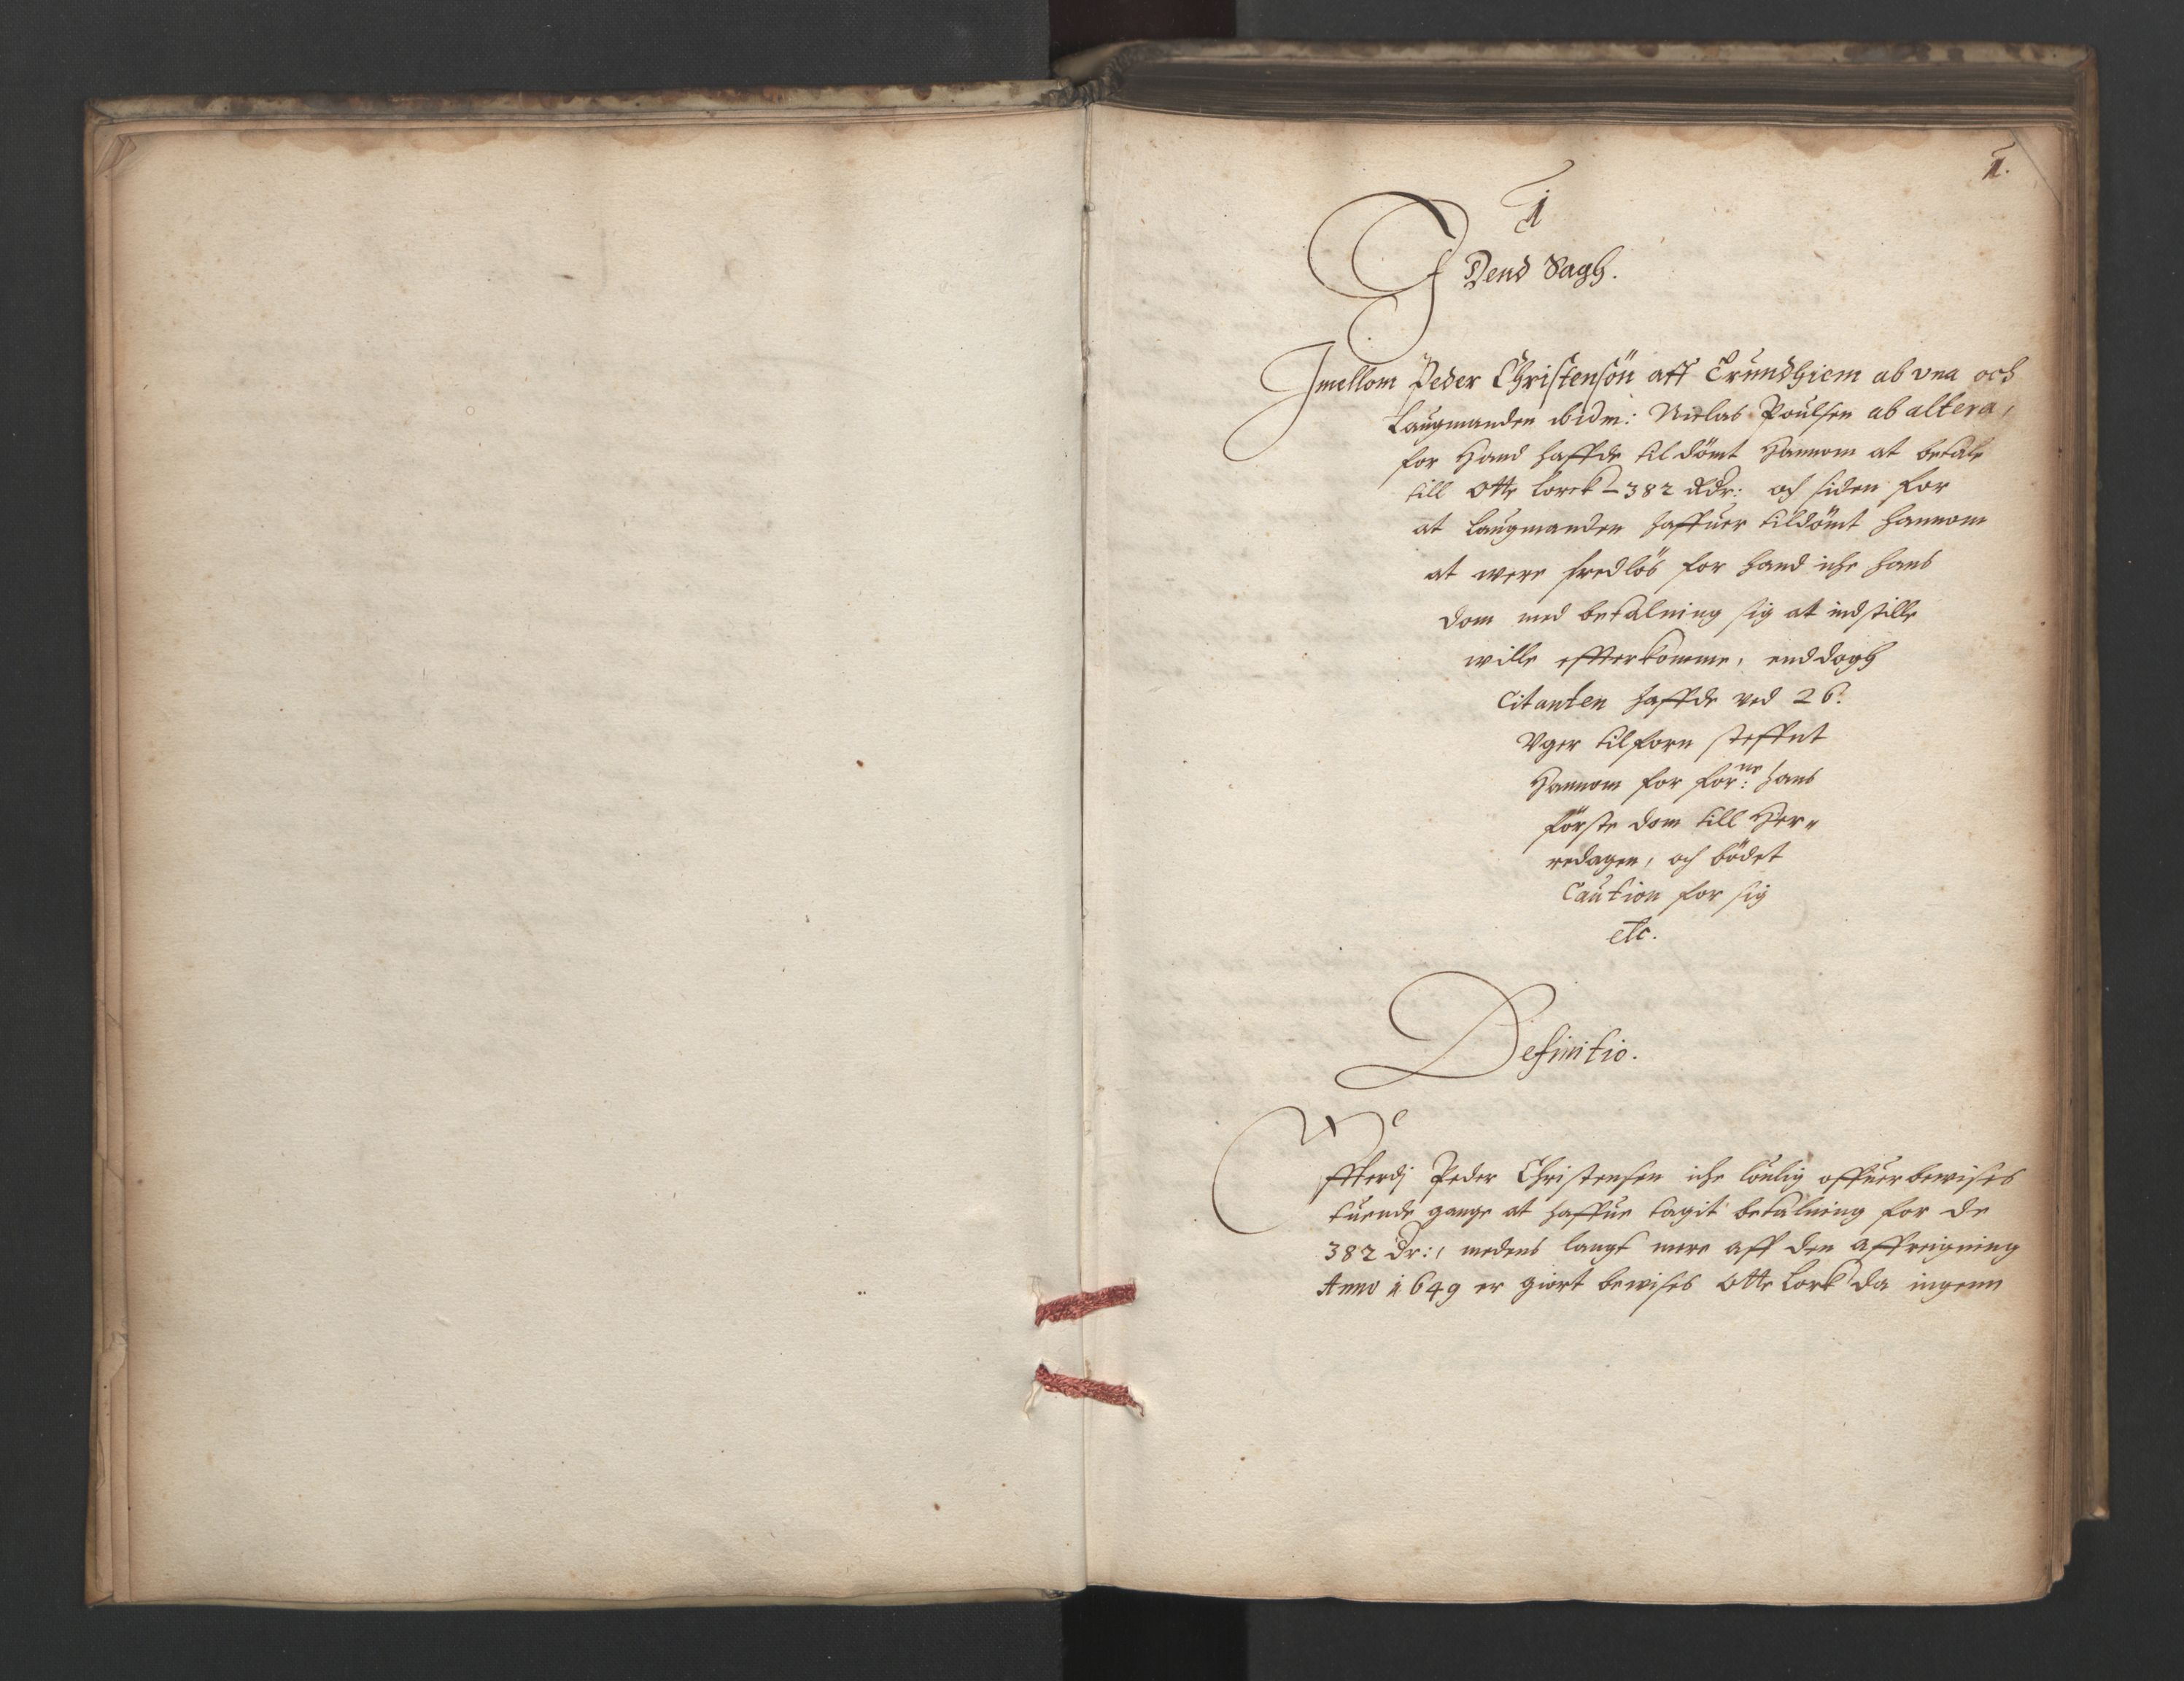 1.
1
J Dend Sagh.
Jmellom Peder Christensön aff Trundhiem ab vna och
Laugmanden ibidm: Niclas Poulsen ab altera,
for Hand haffde til dömt Hannom at betale
till Otte Lorck – 382 Rdr: och siden for
at Laugmanden haffuer tildömt hannom
at were fredlös for hand iche hans
dom med betalning sig at indstille
wille effterkomme, enddogh
Citanten haffde ved 26.
Vger tilforn steffnt
Hannom for for:ne hans
förste dom till Her„
redagen, och bödet
Caution for sig
etc.
Definitio.
Effterdj Peder Christensen iche loulig offuerbewises
tuende gange at haffue tagit betalning for de
382 Dr:, medens langt mere aff den affreigning
Anno 1649 er giort bewises Otte Lork da ingenn